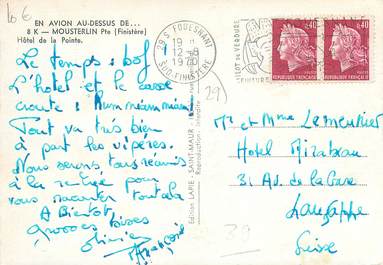 EN AVION AU-DESSUS DE...
8 K — MOUSTERLIN Pte (Finistère)
Hôtel de la Pointe.
Le temps : bof
L'hôtel et le casse
croute : Mum miam miam!
Tout va très bien
à part les vipères.
Nous serons tous réunis
à la rentrée pour
vous raconter tout ça
A Bientôt
grosses bises
Olivier
Françoise
Edition LAPIE - SAINT-MAUR
Reproduction interdite
29 S FOUESNANT
19 H
12-8
1970
SUD-FINISTÈRE
ILOT DE VERDURE
0,40
0,40
REPUBLIQUE FRANCAISE
REPUBLIQUE FRANCAISE
29
Mr et Mme Lemeunier
Hotel Mirabeau
31 Av. de la Gare
Lausanne
Suisse